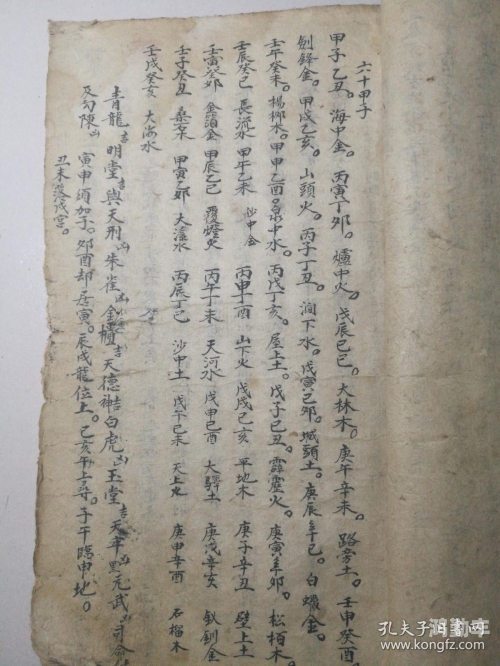 六十甲子
甲子乙丑。海中金。丙寅丁卯。爐中火。戊辰己巳。大林木。庚午辛未。路旁土。壬申癸酉。
劍鋒金。甲戌乙亥。山頭火。丙子丁丑。澗下水。戊寅己卯。城頭土。庚辰辛巳。白蠟金。
壬午癸未。楊柳木。甲申乙酉。泉中水。丙戌丁亥。屋上土。戊子己丑。霹靂火。庚寅辛卯。松栢木
壬辰癸巳 長流水 甲午乙未 沙中金 丙申丁酉 山下火 戊戌己亥 平地木 庚子辛丑 壁上土
壬寅癸卯 金箔金 甲辰乙巳 覆燈火 丙午丁未 天河水 戊申己酉 大驛土 庚戌辛亥 釵釧金
壬子癸丑 桑柘木 甲寅乙卯 大溪水 丙辰丁巳 沙中土 戊午己未 天上火 庚申辛酉 石榴木
壬戌癸亥 大海水
青龍吉明堂吉與天刑凶朱雀凶金櫃吉天德神吉白虎凶玉堂吉天牢凶元武凶司命
及勾陳凶 寅申須加子。卯酉却居寅。辰戌龍位上。巳亥午上尋。子午臨申地。
丑未落戌宮。
孔夫子旧书网